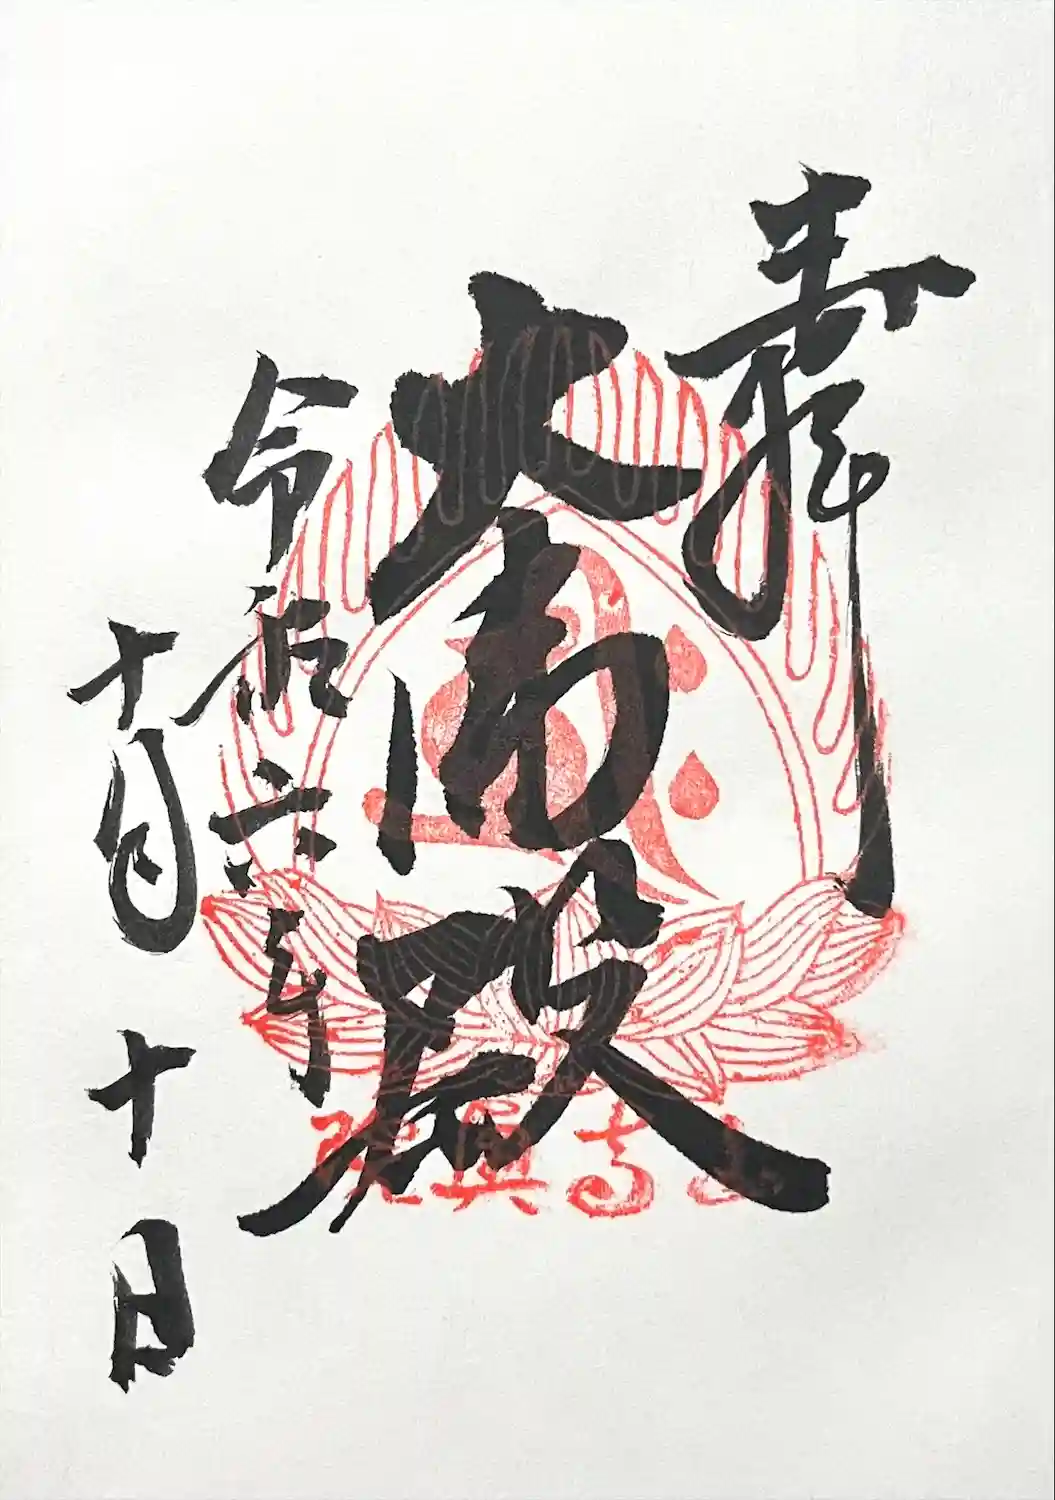 奉拝
大 殿
令和六年
十月十日
興寺